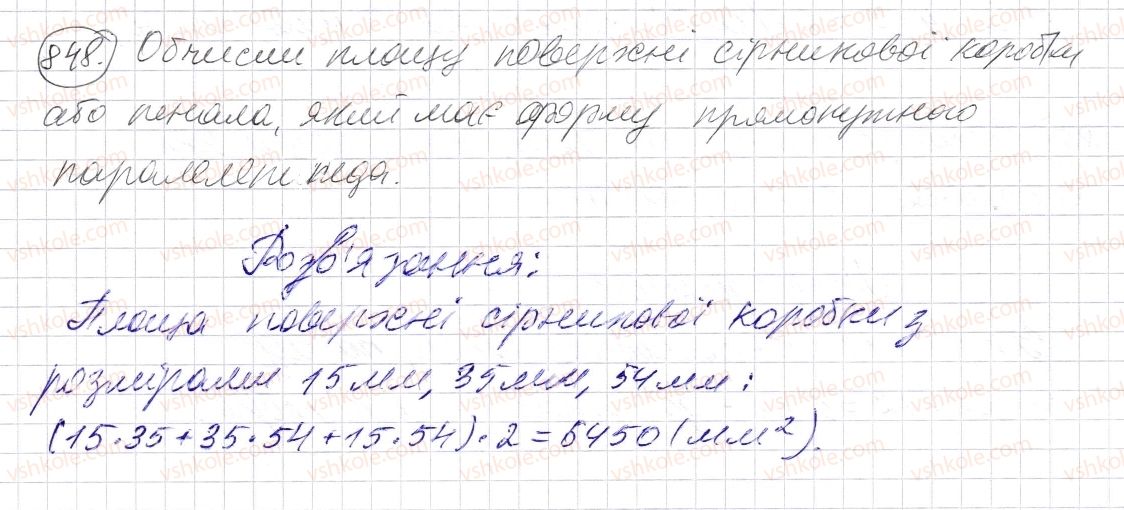 848. Обчисли площу поверхні сірникової коробки
або пенала, який має форму прямокутного
паралелепіпеда.
Розв'язання:
Площа поверхні сірникової коробки з
розмірами 15мм, 35мм, 54мм:
(15·35+35·54+15·54)·2=6450(мм²).